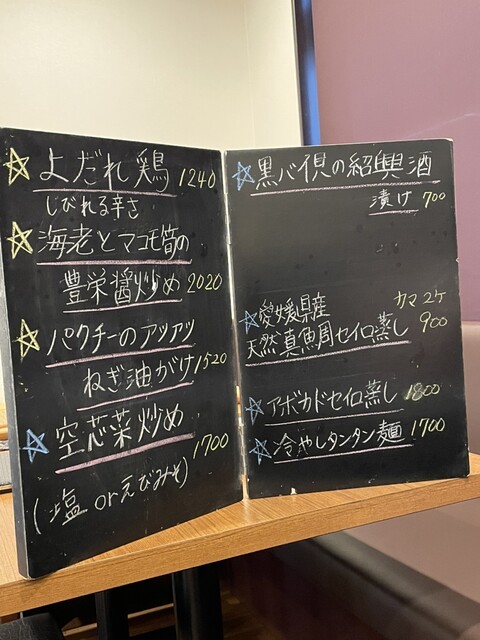 よだれ鶏 1240
しびれる辛さ
海老とマコモ筍の
豊栄醤炒め 2020
パクチーのアツアツ
ねぎ油がけ 1520
空芯菜炒め
1700
(塩 or えびみそ)
黒バイ貝の紹興酒
漬け 700
愛媛県産 カマ 2ケ
天然真魚周セイロ蒸し 900
アボカドセイロ蒸し 1800
冷やしタンタン麺 1700